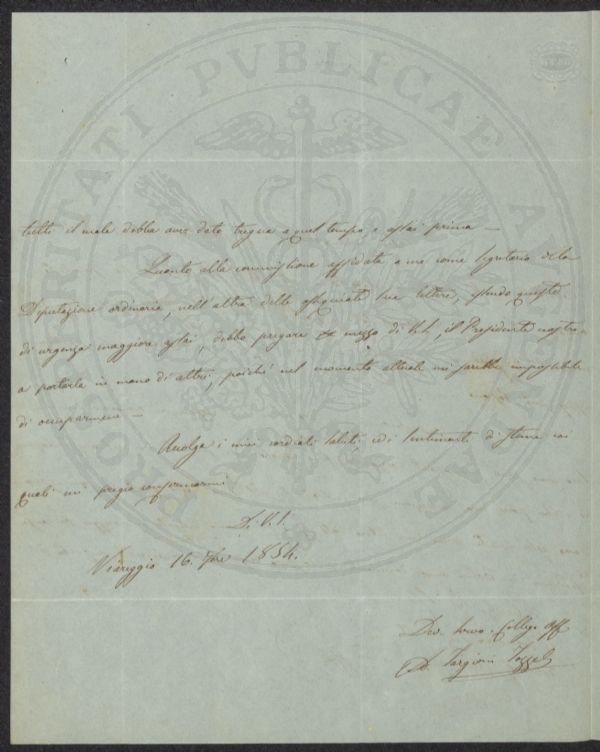 PROSPERITATI PVBLICAE AVGENDAE
tutti il male debba aver dato tregua a quel tempo e assai prima —
Quanto alla commissione affidata a me come Segretario della
Deputazione ordinaria, nell'altra delle ossequiate sue lettere, essendo questo
di urgenza maggiore assai, debbo pregare mezzo di V.S., il Presidente nostro
a portarla in mano di altri, poiché nel momento attuale mi sarebbe impossibile
di occuparmene —
Accolga i miei cordiali saluti, ed i sentimenti di stima coi
quali mi pregio confermarmi
D. V. S.
Viareggio 16. 7bre 1854.
Dev. servo. Collega Aff
A. Targioni Tozzetti